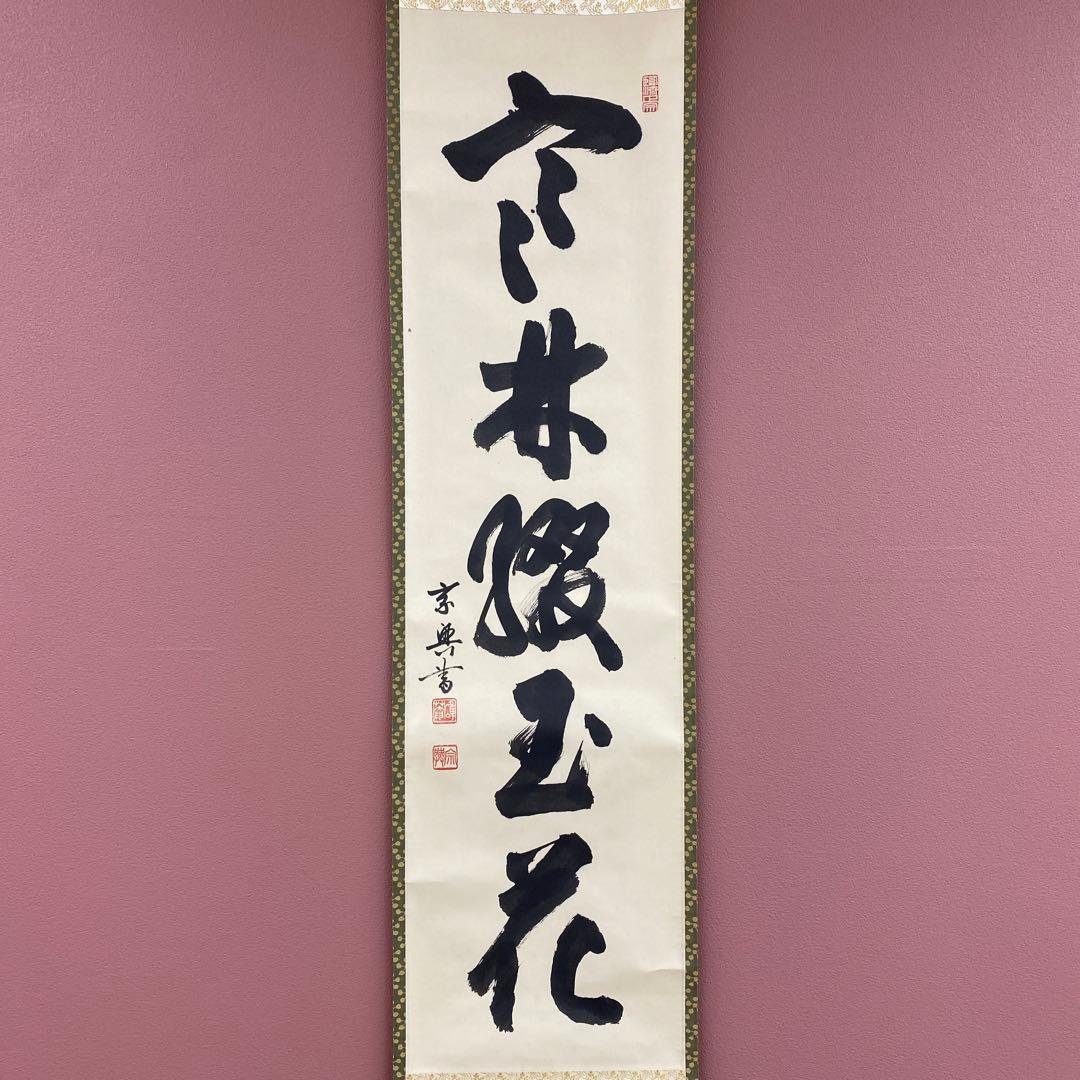 寒林綴玉花
宗興書